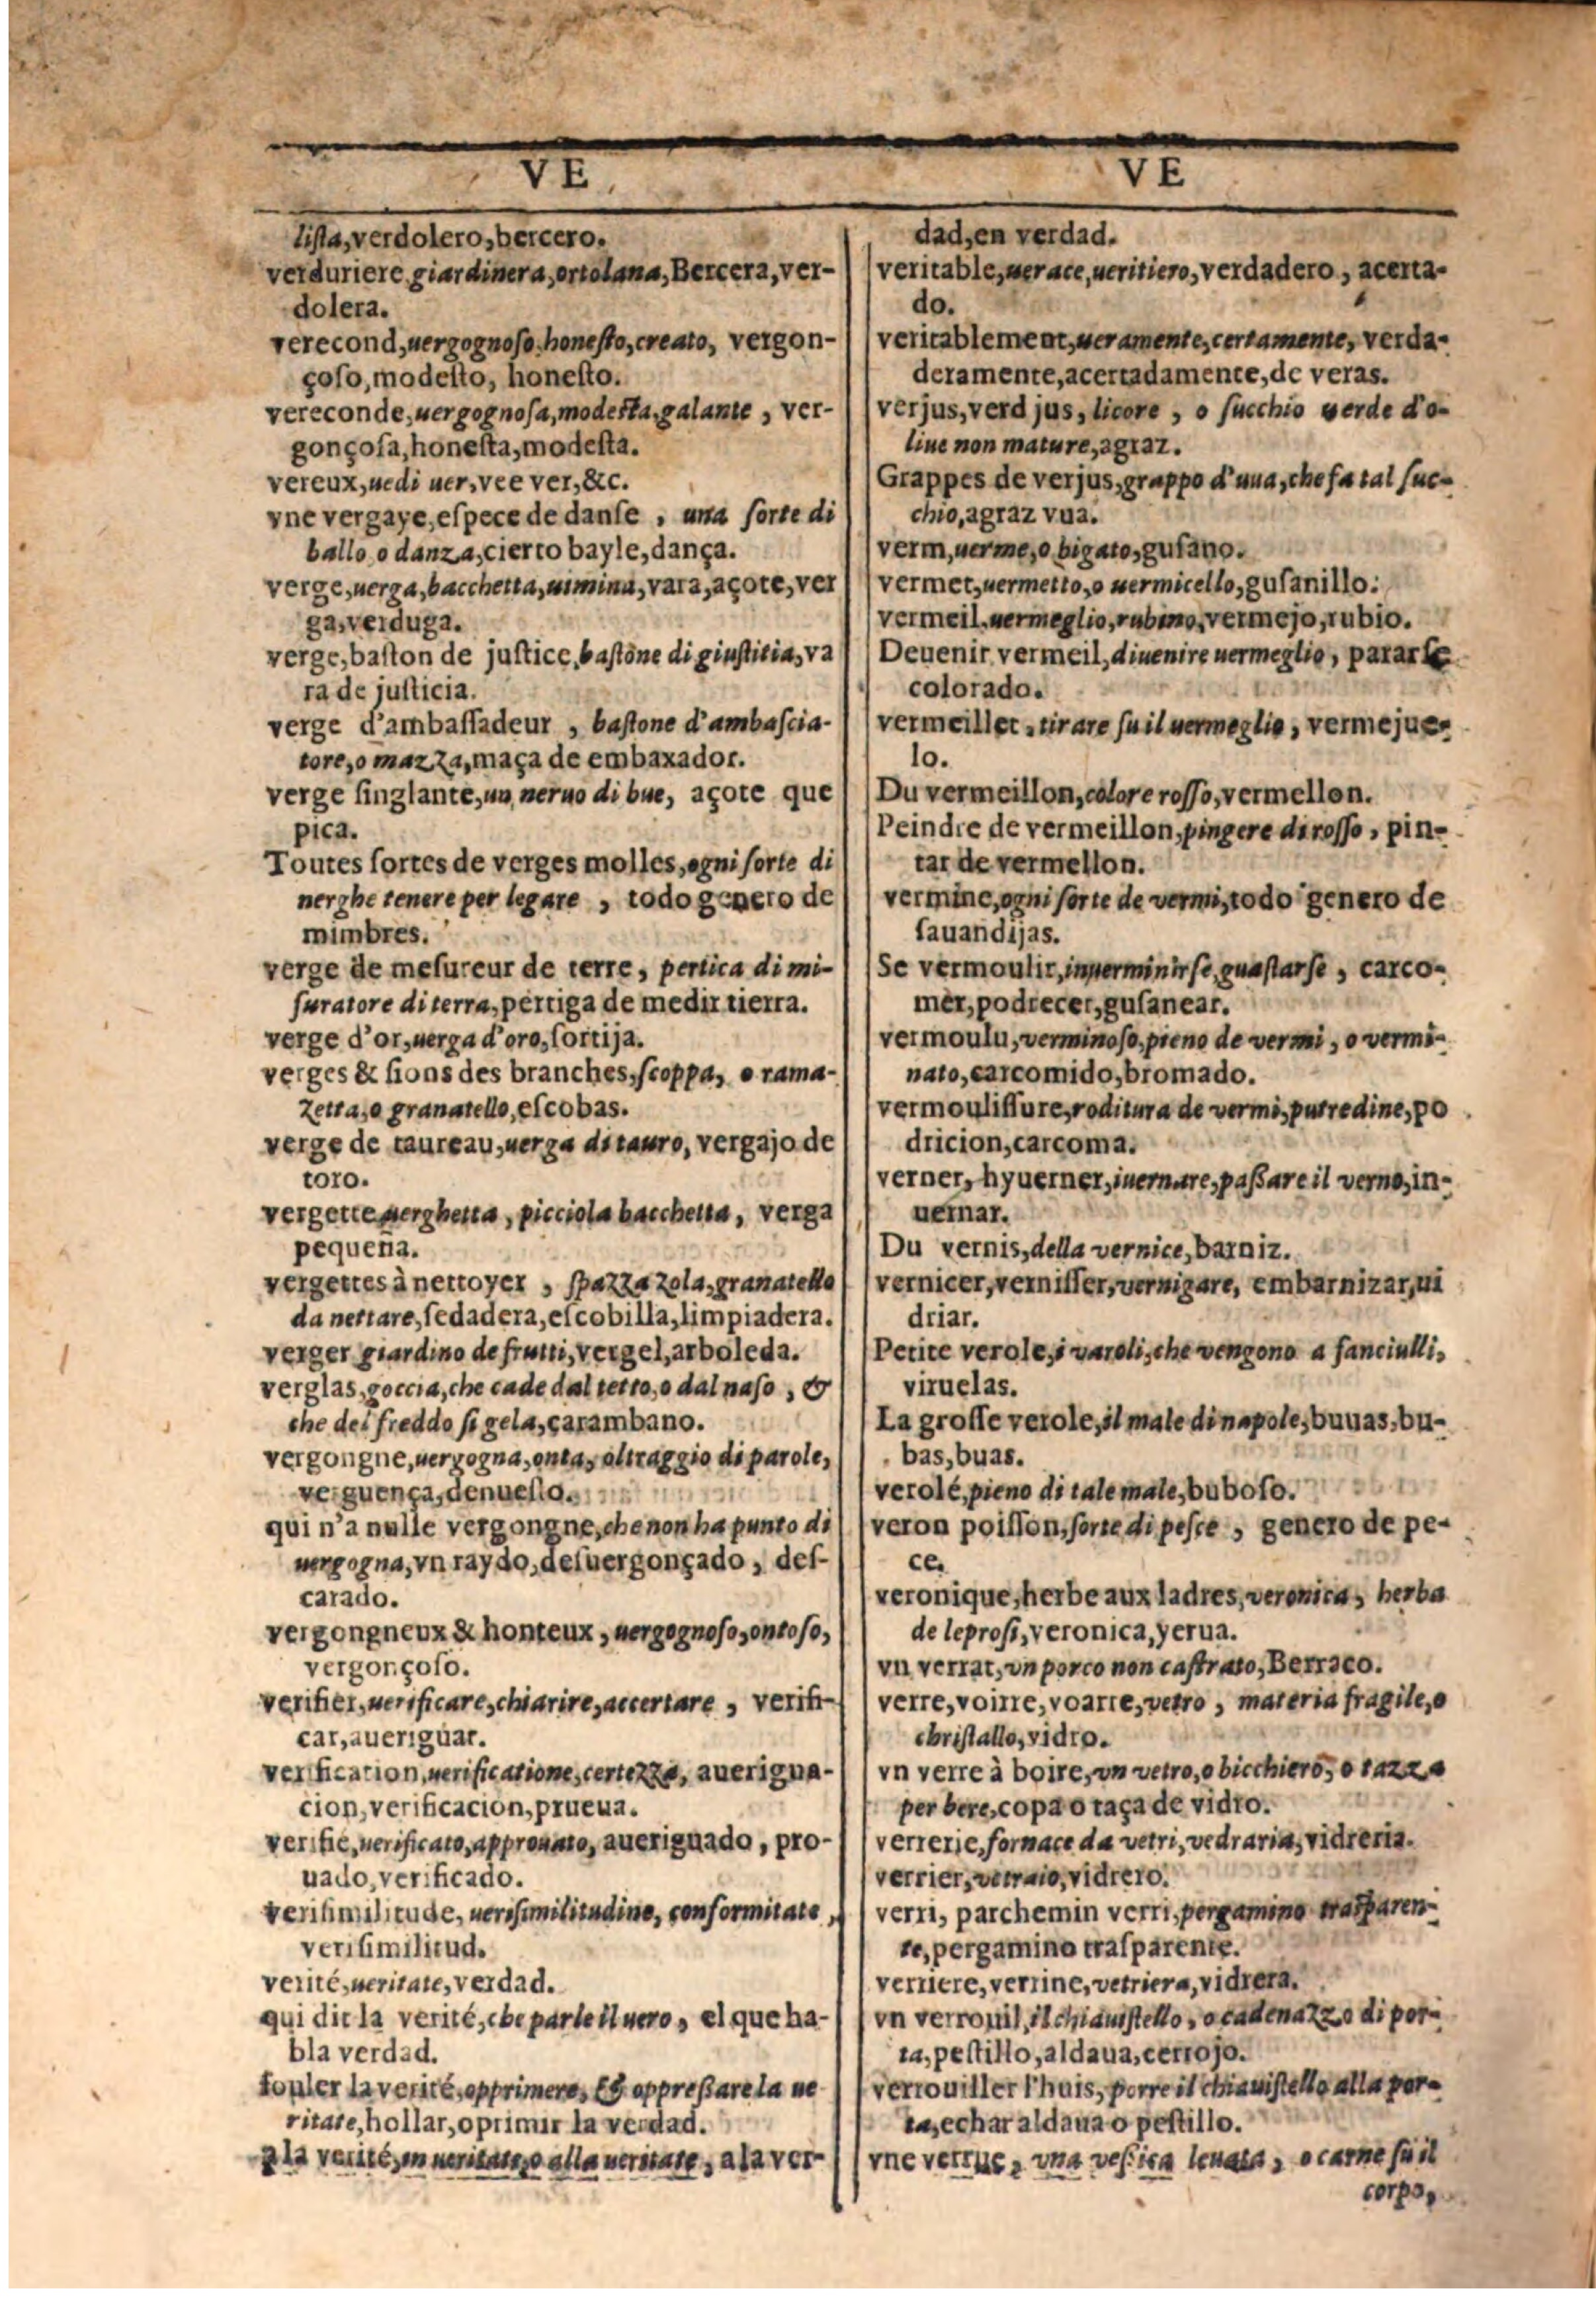 VE
liſta,verdolero,bercero.
verduriere,giardinera,ortolana,Bercera,ver-
dolera.
verecond,uergognoſo,honeſto,creato, vergon-
çoſo,modeſto, honeſto.
vereconde,uergognoſa,modeſta,galante , ver-
gonçoſa,honeſta,modeſta.
vereux,uedi uer,vee ver,&c.
vne vergaye,eſpece de danſe , una ſorte di
ballo o danza,cierto bayle,dança.
verge,uerga,bacchetta,uimina,vara,açote,ver
ga,verduga.
verge,baſton de juſtice,baſtone di giuſtitia,va
ra de juſticia.
verge d'ambaſſadeur , baſtone d'ambaſcia-
tore,o mazza,maça de embaxador.
verge ſinglante,un neruo di bue, açote que
pica.
Toutes ſortes de verges molles,ogni ſorte di
uerghe tenere per legare , todo genero de
mimbres.
verge de meſureur de terre, pertica di mi-
ſuratore di terra,pertiga de medir tierra.
verge d'or,uerga d'oro,ſortija.
verges & ſions des branches,ſcoppa, o rama-
zetta,o granatello,eſcobas.
verge de taureau,uerga di tauro, vergajo de
toro.
vergette uerghetta , picciola bacchetta, verga
pequeña.
vergettes à nettoyer , ſpazzazola,granatello
da nettare,ſedadera,eſcobilla,limpiadera.
verger giardino de frutti,vergel,arboleda.
verglas,goccia,che cade dal tetto,o dal naſo , &
che del freddo ſi gela,carambano.
vergongne,uergogna,onta,oltraggio di parole,
verguença,denueſto.
qui n'a nulle vergongne,che non ha punto di
uergogna,vn raydo,deſuergonçado, deſ-
carado.
vergongneux & honteux , uergognoſo,ontoſo,
vergonçoſo.
verifier,uerificare,chiarire,accertare , verifi-
car,aueriguar.
verification,uerificatione,certezza, auerigua-
cion,verificacion,prueua.
verifié,uerificato,approuato, aueriguado , pro-
uado,verificado.
veriſimilitude, ueriſimilitudine, conformitate ,
veriſimilitud.
verité,ueritate,verdad.
qui dit la verité,che parle il uero, el que ha-
bla verdad.
fouler la verité,opprimere, & oppreſſare la ue
ritate,hollar,oprimir la verdad.
a la verité,in ueritate,o alla ueritate, a la ver-
VE
dad,en verdad.
veritable,uerace,ueritiero,verdadero , acerta-
do.
veritablement,ueramente,certamente, verda-
deramente,acertadamente,de veras.
verjus,verd jus, licore , o ſucchio verde d'o-
liue non mature,agraz.
Grappes de verjus,grappo d'uua,che fa tal ſuc-
chio,agraz vua.
verm,uerme,o bigato,guſano.
vermet,uermetto,o uermicello,guſanillo.
vermeil,uermeglio,rubino,vermejo,rubio.
Deuenir vermeil,diuenire uermeglio, pararſe
colorado.
vermeillet,tirare ſu il uermeglio, vermejue-
lo.
Du vermeillon,colore roſſo,vermellon.
Peindre de vermeillon,pingere di roſſo, pin-
tar de vermellon.
vermine,ogni ſorte de vermi,todo genero de
ſauandijas.
Se vermoulir,inuerminirſe,guaſtarſe , carco-
mer,podrecer,guſanear.
vermoulu,verminoſo,pieno de vermi, o vermi-
nato,carcomido,bromado.
vermouliſſure,roditura de vermi,putredine,po
dricion,carcoma.
verner, hyuerner,inuernare,paſſare il verno,in-
uernar.
Du vernis,della vernice,barniz.
vernicer,verniſſer,vernigare, embarnizar,ui
driar.
Petite verole,i varoli,che vengono a fanciulli,
viruelas.
La groſſe verole,il male di napole,buuas,bu-
bas,buas.
verolé,pieno di tale male,buboſo.
veron poiſſon,ſorte di peſce , genero de pe-
ce.
veronique,herbe aux ladres,veronica, herba
de leproſi,veronica,yerua.
vn verrat,vn porco non caſtrato,Berraco.
verre,voirre,voarre,vetro , materia fragile,o
chriſtallo,vidro.
vn verre à boire,vn vetro,o bicchiero, o tazza
per bere,copa o taça de vidro.
verrerie,fornace da vetri,vedraria,vidreria.
verrier,vetraio,vidrero.
verri, parchemin verri,pergamino traſparen-
te,pergamino traſparente.
verriere,verrine,vetriera,vidrera.
vn verrouil,il chiauiſtello, o cadenazzo di por-
ta,peſtillo,aldaua,cerrojo.
verrouiller l'huis, porre il chiauiſtello alla por-
ta,echar aldaua o peſtillo.
vne verrue, vna veſſica leuata, o carne ſu il
corpo,